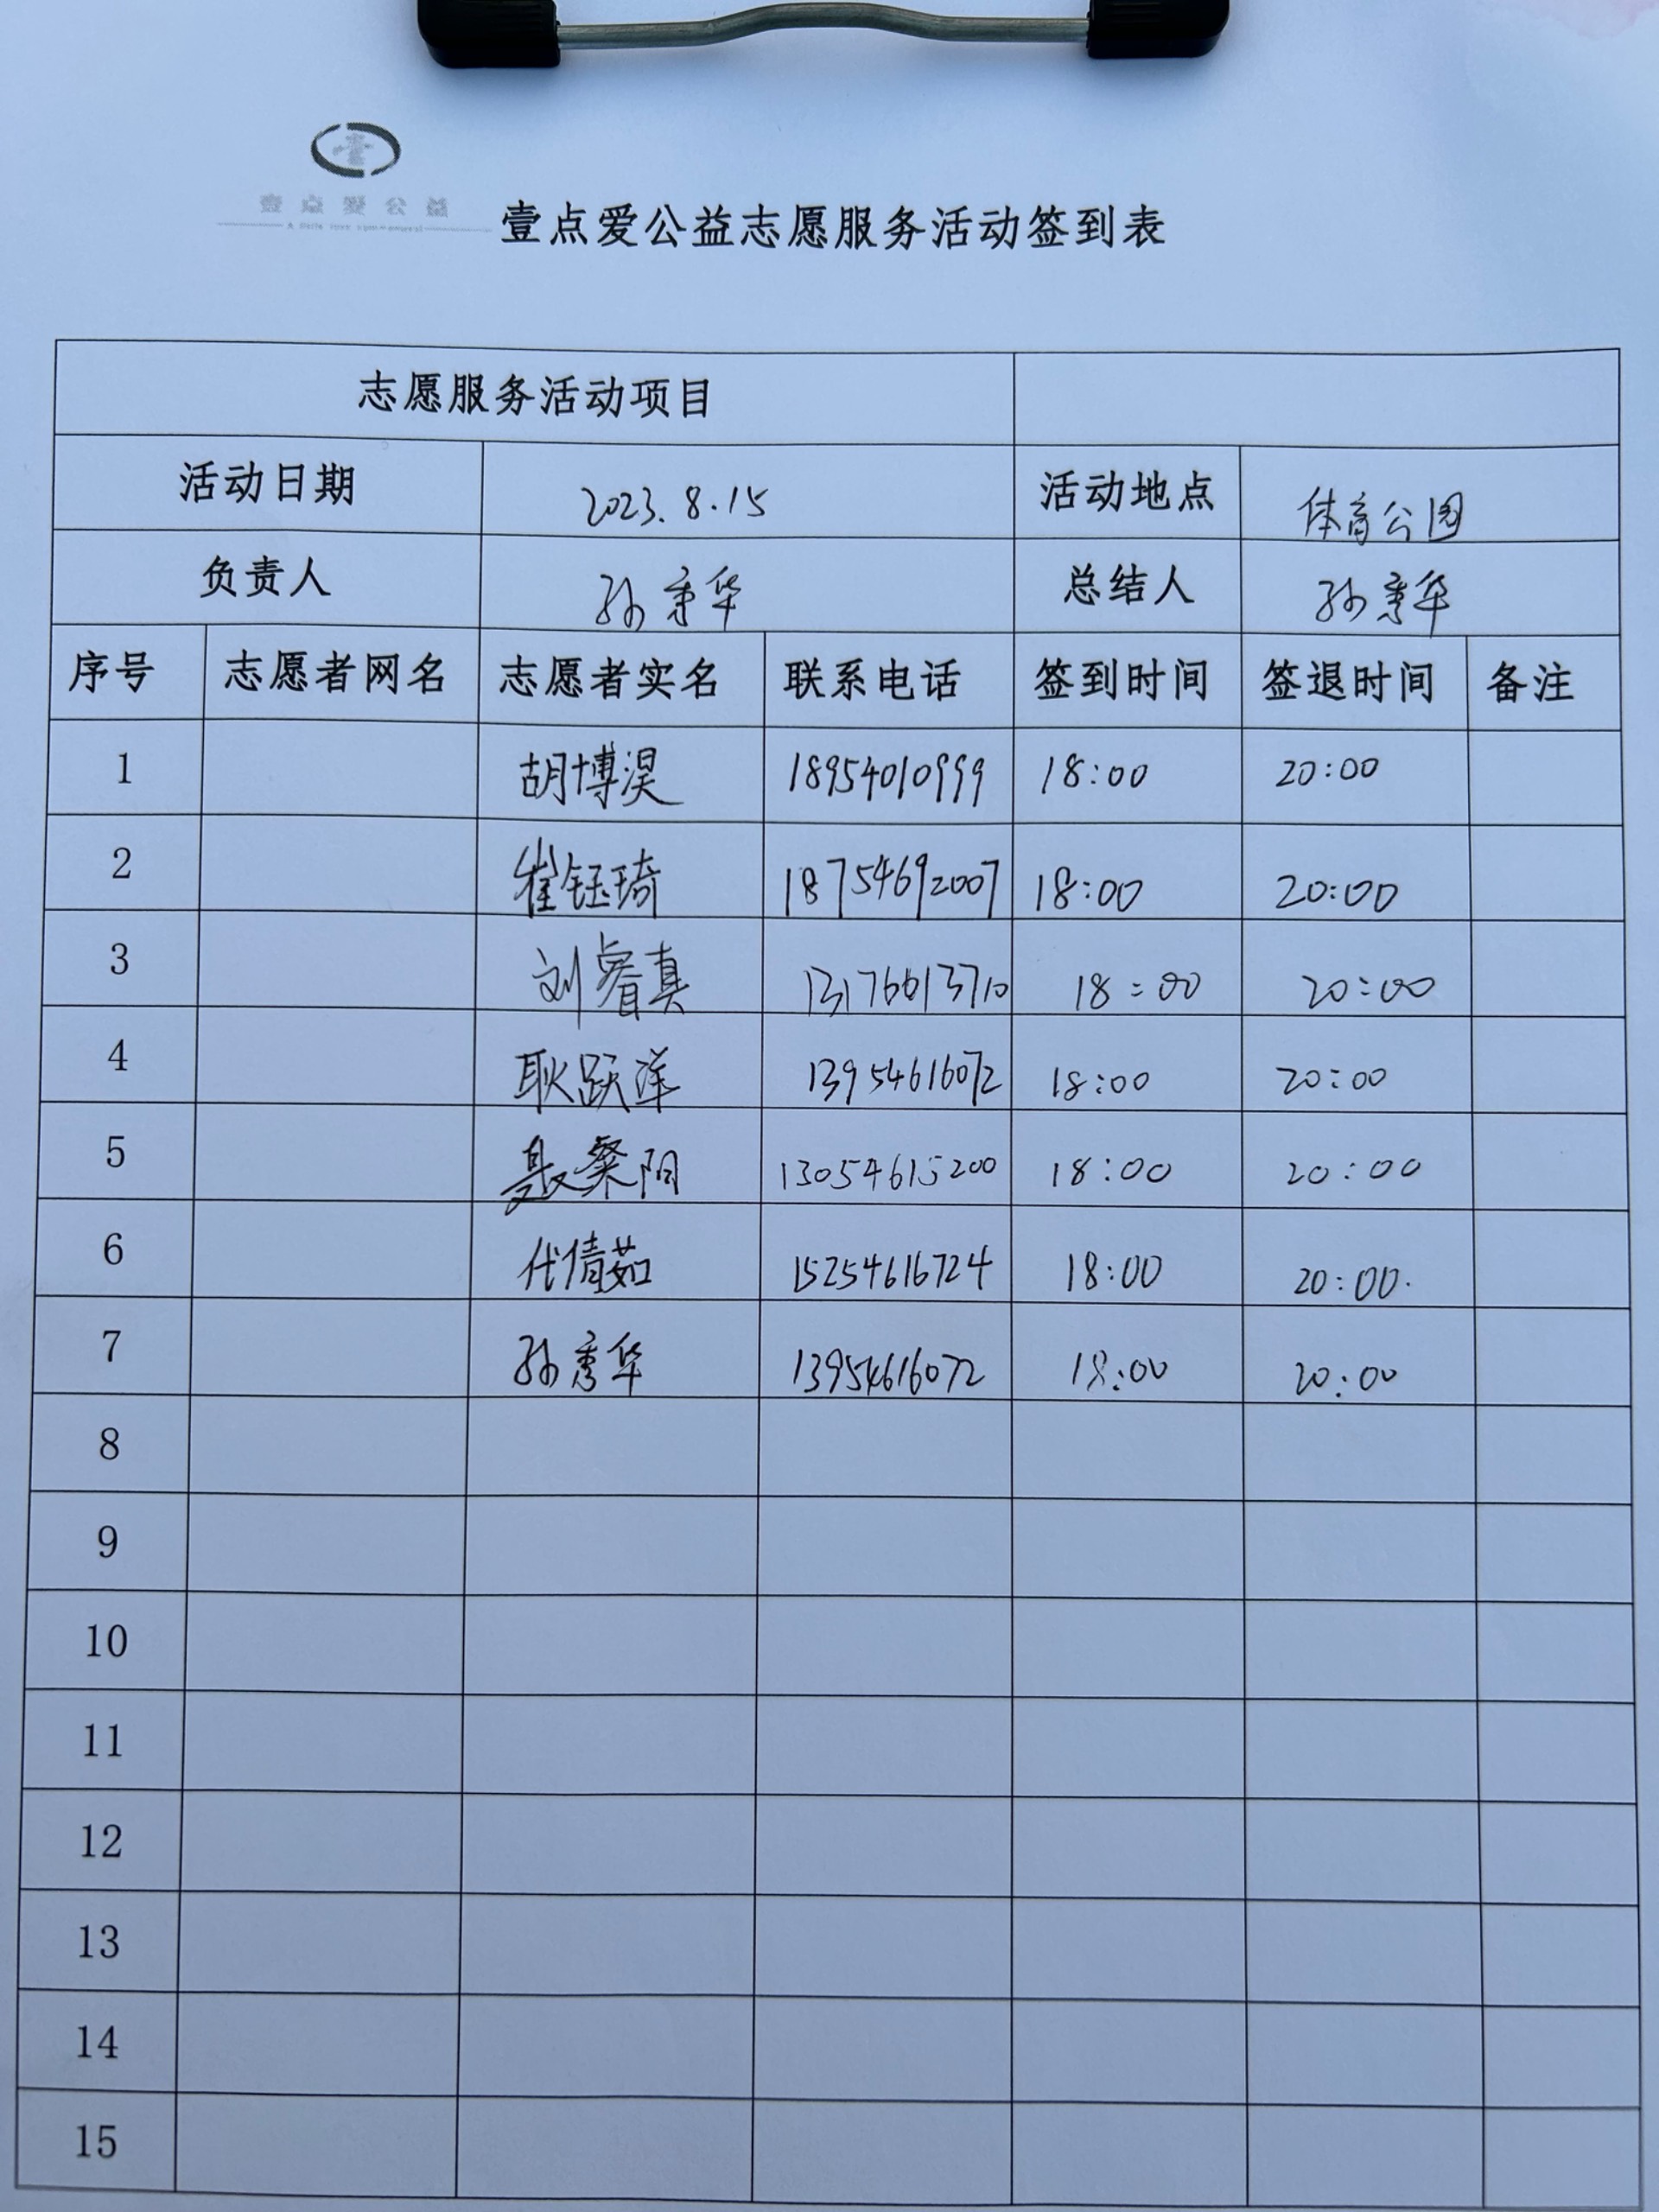 壹点爱公益
壹点爱公益志愿服务活动签到表
志愿服务活动项目
活动日期 2023.8.15 活动地点 体育公园
负责人 孙秀华 总结人 孙秀华
序号 志愿者网名 志愿者实名 联系电话 签到时间 签退时间 备注
1 胡博淏 18954010999 18:00 20:00
2 崔钰琦 18754692007 18:00 20:00
3 刘睿真 13176613710 18:00 20:00
4 耿跃洋 13954616072 18:00 20:00
5 聂粲阳 13054615200 18:00 20:00
6 代倩茹 15254616724 18:00 20:00.
7 孙秀华 13954616072 18:00 20:00
8
9
10
11
12
13
14
15